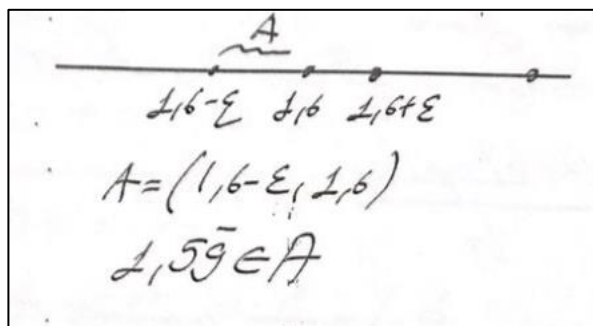 A
1,6-ε 1,6 1,6+ε
A=(1,6-ε, 1,6)
1,59̄ ∈ A